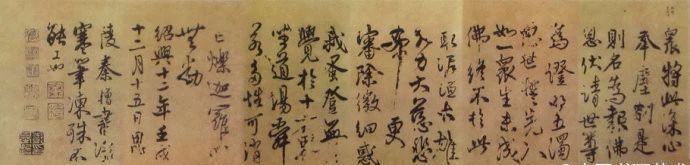 眾將此深心
奉塵剎是
則名為報佛
恩伏請世尊
為證明五濁
惡世誓先入
如一眾生未成
佛終不於此
取泥洹大雄
大力大慈悲
希更
審除微細惑
我蚤登無
覺於十方界
坐道場舜
若多性可消
亡爍迦羅心
無動
紹興十二年壬戌
十二月十五日
陵秦檜書
寒筆凍殊不
能工也